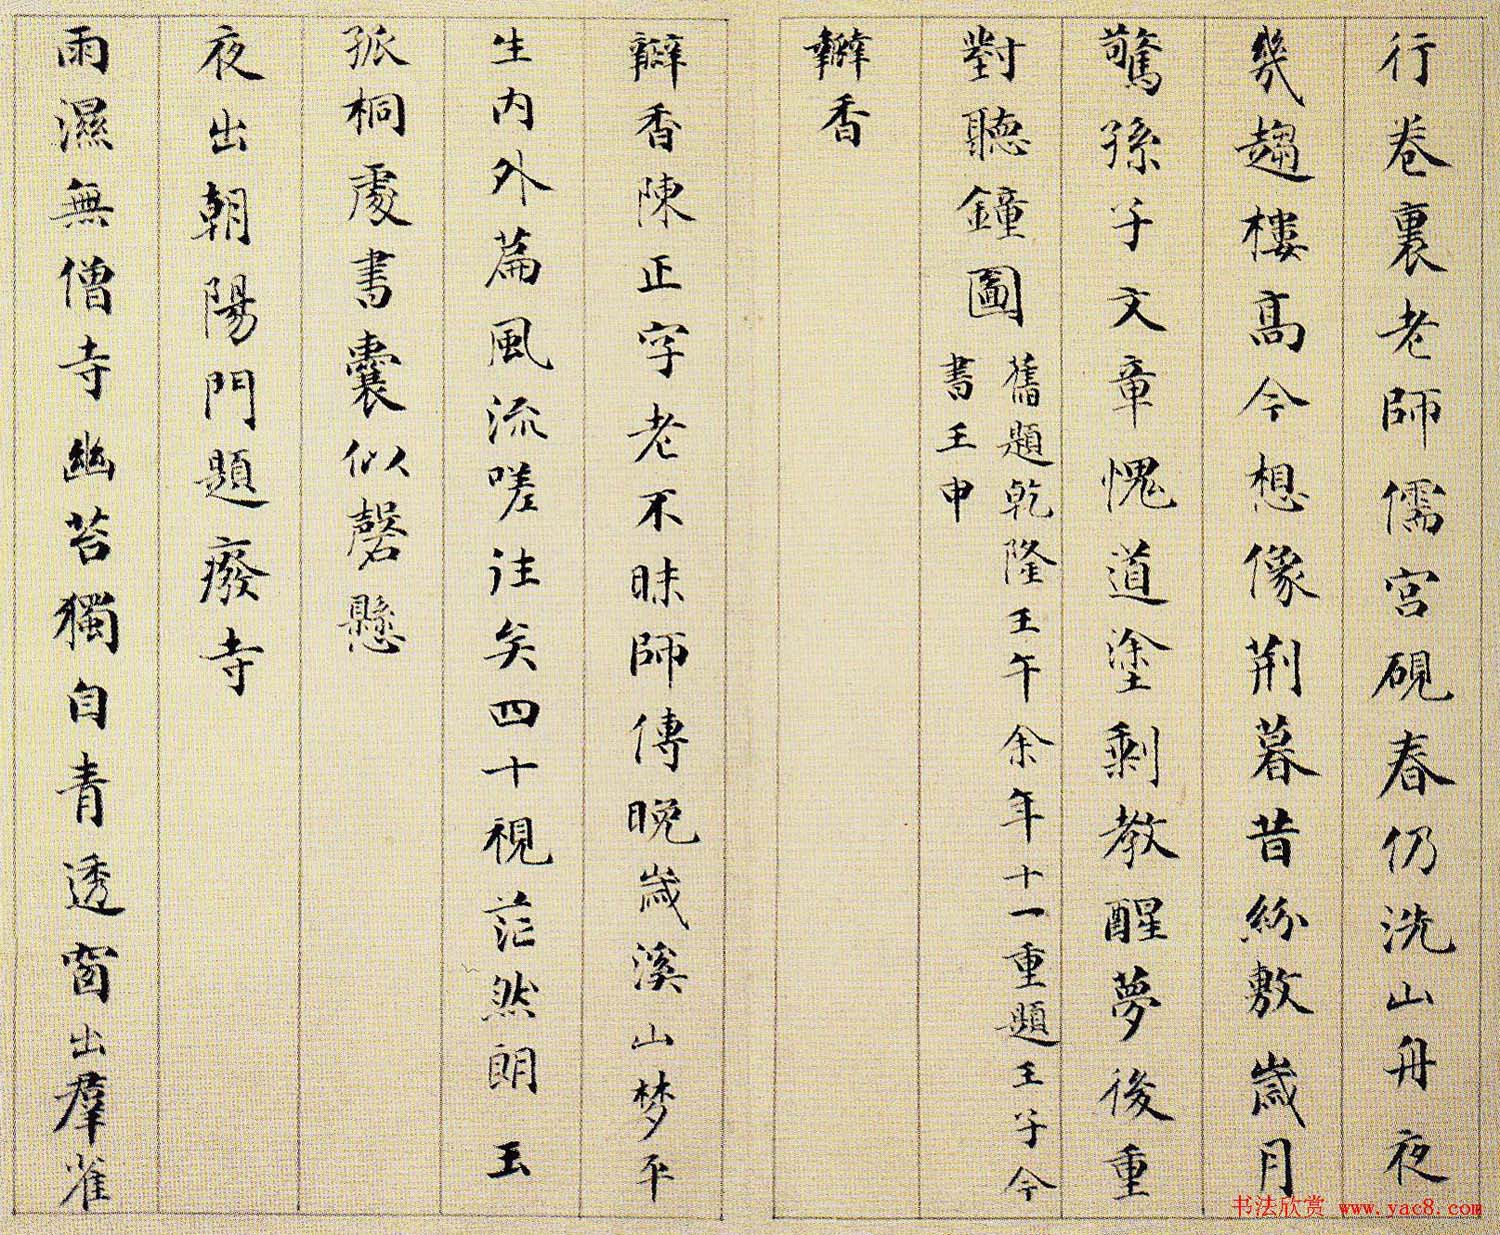 行卷裏老師儒宮硯春仍洗山舟夜
幾趨樓高今想像荆暮昔紛敷歲月
驚孫子文章愧道塗剩教醒夢後重
對聽鐘圖 舊題乾隆壬午余年十一重題壬子今
書壬申
瓣香
瓣香陳正字老不昧師傳晚歲溪山梦平
生内外篇風流嗟注矣四十視茫然朗玉
孤桐處書囊似磬懸
夜出朝陽門題廢寺
雨濕無僧寺幽苔獨自青透窗出群雀
书法欣赏 www.yac8.com